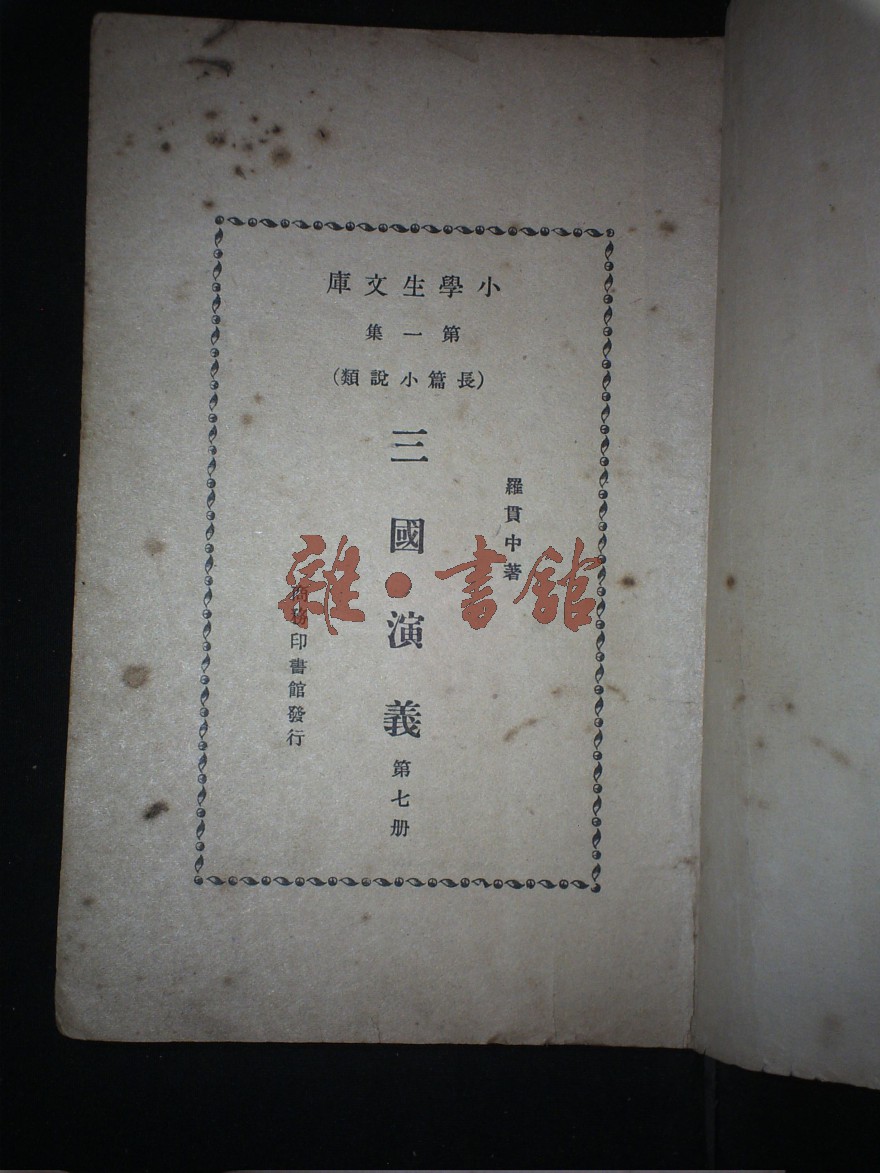 小學生文庫
第一集
(長篇小說類)
羅貫中著
三國演義 第七册
商務印書館發行
雜·書館